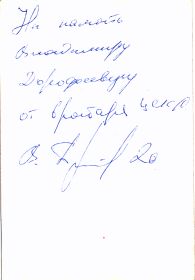 На память
Владимиру
Дорофеевичу
от вратаря ЦСКА
В. 20